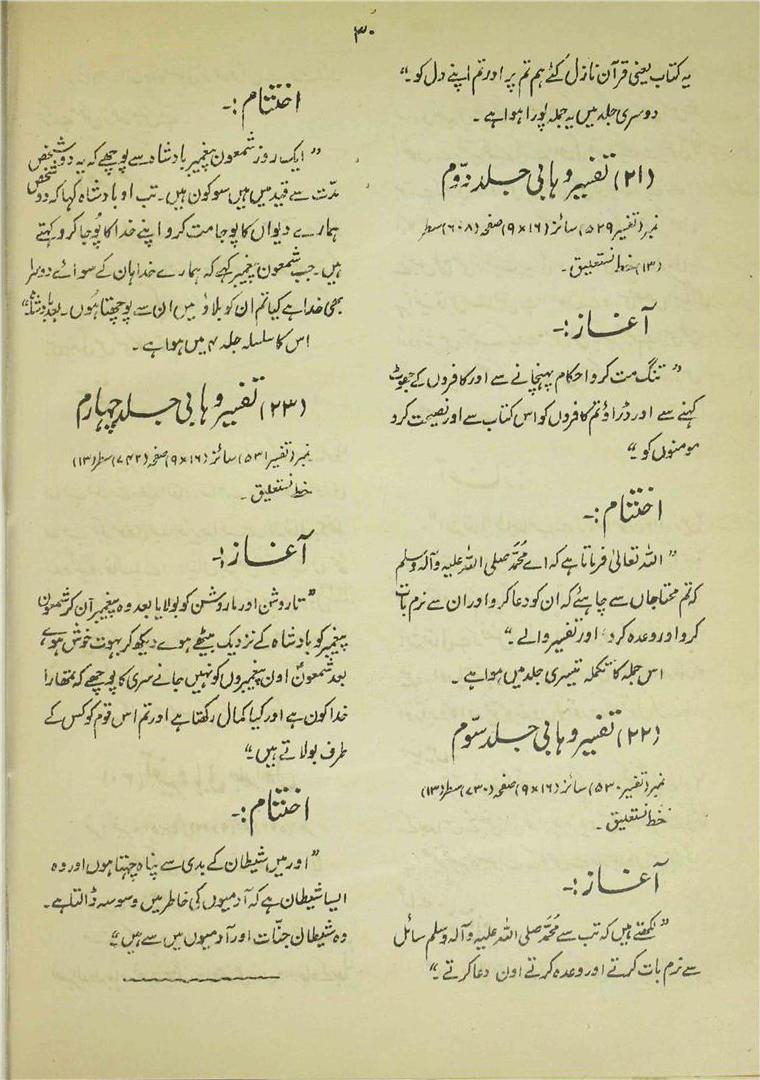 ۳۰
یہ کتاب یعنی قرآن نازل کئے ہم تم پر اور تم اپنے دل کو۔"
دوسری جلد میں یہ جملہ پورا ہوا ہے ۔
(۲۱) تفسیر وہابی جلد دوّم
نمبر (تفسیر ۵۲۹) سائز (۱۶×۹) صفحہ (۶۰۸) سطر
(۱۳) خط نستعلیق۔
آغاز :-
" تنگ مت کرو احکام پہنچانے سے اور کافروں کے جھوٹ
کہنے سے اور ڈراؤ تم کافروں کو اس کتاب سے اور نصیحت کرو
مومنوں کو ۔"
اختتام :-
" اللہ تعالیٰ فرماتا ہے کہ اے محمّد صلی اللہ علیہ وآلہ وسلم
کہ تم محتاجاں سے چاہیئے کہ ان کو دعا کرو اور ان سے نرم بات
کرو اور وعدہ کرد، اور تفسیر والے ۔"
اس جملہ کا تکملہ تیسری جلد میں ہوا ہے ۔
(۲۲) تفسیر وہابی جلد سوّم
نمبر (تفسیر ۵۳۰) سائز (۱۶×۹) صفحہ (۷۳۰) سطر (۱۳)
خط نستعلیق ۔
آغاز :-
" لکھتے ہیں کہ تب سے محمّد صلی اللہ علیہ وآلہ وسلم سائل
سے نرم بات کرتے اور وعدہ کرتے اون دعا کرتے ۔"
اختتام :-
" ایک روز شمعون پیغمبر بادشاہ سے پوچھے کہ یہ دو شخص
مدّت سے قید میں ہیں سو کون ہیں۔ تب او بادشاہ کہا کہ دو شخص
ہمارے دیواں کا پوجا مت کرو اپنے خدا کا پُوجا کرو کہتے
ہیں۔ جب شمعون پیغمبر کہے کہ ہمارے خداہان کے سوائے دوسرا
بھی خدا ہے کیا تم ان کو بلاو میں ان سے پوچھتا ہُوں۔ بعد بادشاہ"
اس کا سلسلہ جلد ۴ میں ہوا ہے ۔
(۲۳) تفسیر وہابی جلد چہارم
نمبر (تفسیر ۵۳۱) سائز (۱۶×۹) صفحہ (۷۴۲) سطر (۱۳)
خط نستعلیق ۔
آغاز :-
" تاروشن اور ماروشن کو بولایا بعد وہ پیغمبر آن کر شمعون
پیغمبر کو بادشاہ کے نزدیک بیٹھے ہوے دیکھ کر بہوت خوش ہوے
بعد شمعون اون پیغمبروں کو نہیں جانے سری کا پوچھے کہ تمھارا
خدا کون ہے اور کیا کمال رکھتا ہے اور تم اس قوم کو کس کے
طرف بولاتے ہیں ۔"
اختتام :-
" اور میں شیطان کے بدی سے پناہ چہتا ہوں اور وہ
ایسا شیطان ہے کہ آدمیوں کی خاطر میں وسوسہ ڈالتا ہے ۔
وہ شیطان جنّات اور آدمیوں میں سے ہیں ۔"